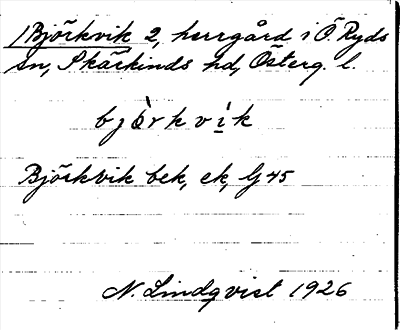 /Björkvik 2, herrgård i Ö. Ryds
sn, Skärkinds hd, Österg. l.
bjòrkvik
Björkvik bek, ek, G 45
N. Lindqvist 1926